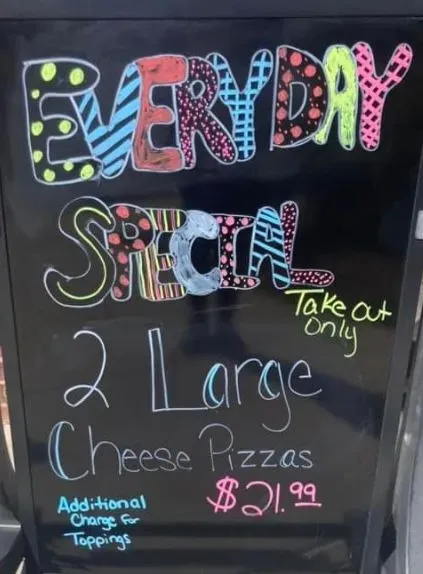 EVERYDAY
SPECIAL
Take out
only
2 Large
Cheese Pizzas
$21.99
Additional
Charge For
Toppings